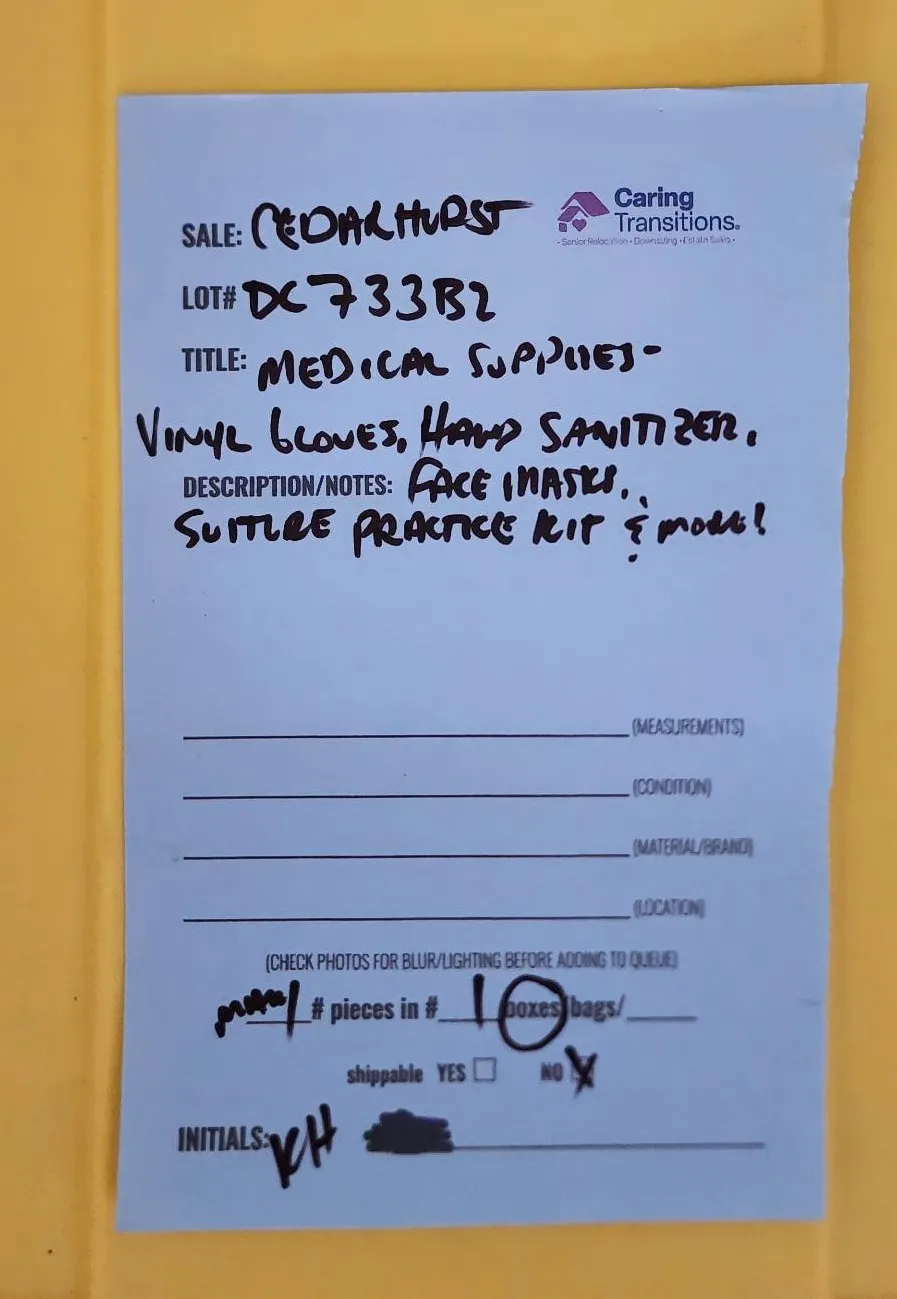 Caring
Transitions.
- Senior Relocation • Downsizing • Estate Sales -
SALE: CEDARHURST
LOT# DC733B2
TITLE: MEDICAL SUPPLIES-
VINYL GLOVES, HAND SANITIZER,
DESCRIPTION/NOTES: FACE MASKS,
SUTURE PRACTICE KIT & MORE!
(MEASUREMENTS)
(CONDITION)
(MATERIAL/BRAND)
(LOCATION)
(CHECK PHOTOS FOR BLUR/LIGHTING BEFORE ADDING TO QUEUE)
# pieces in # 1 boxes/bags/
shippable YES NO X
INITIALS: KH